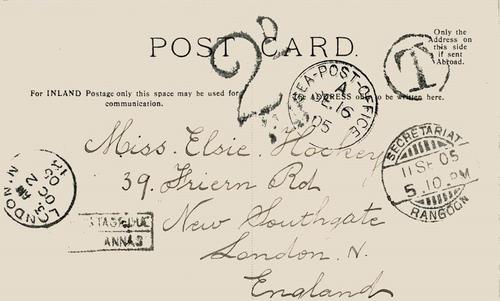 POST CARD.
2d
T
Only the
Address on
this side
if sent
Abroad.
For INLAND Postage only this space may be used for
communication.
The ADDRESS only to be written here.
SEA-POST-OFFICE
A
SE.16
05
Miss. Elsie. Hockey
39. Friern Rd
New Southgate
London. N.
England
SECRETARIAT
11 SE 05
5.10.PM
RANGOON
LONDON
OC 2
POSTAGE DUE
ANNAS